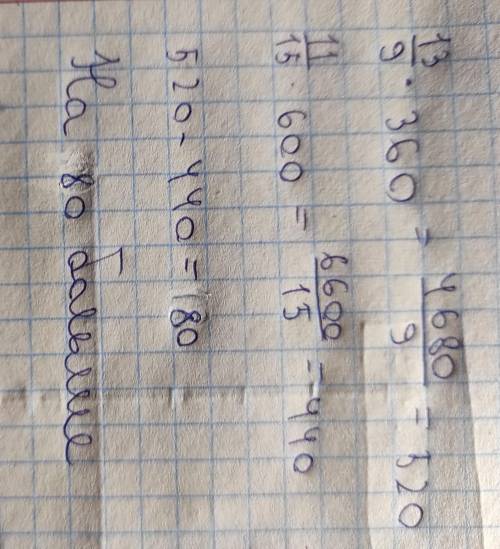 13/9 · 360 = 4680/9 = 520
11/15 · 600 = 6600/15 = 440
520 - 440 = 80
На 80 больше